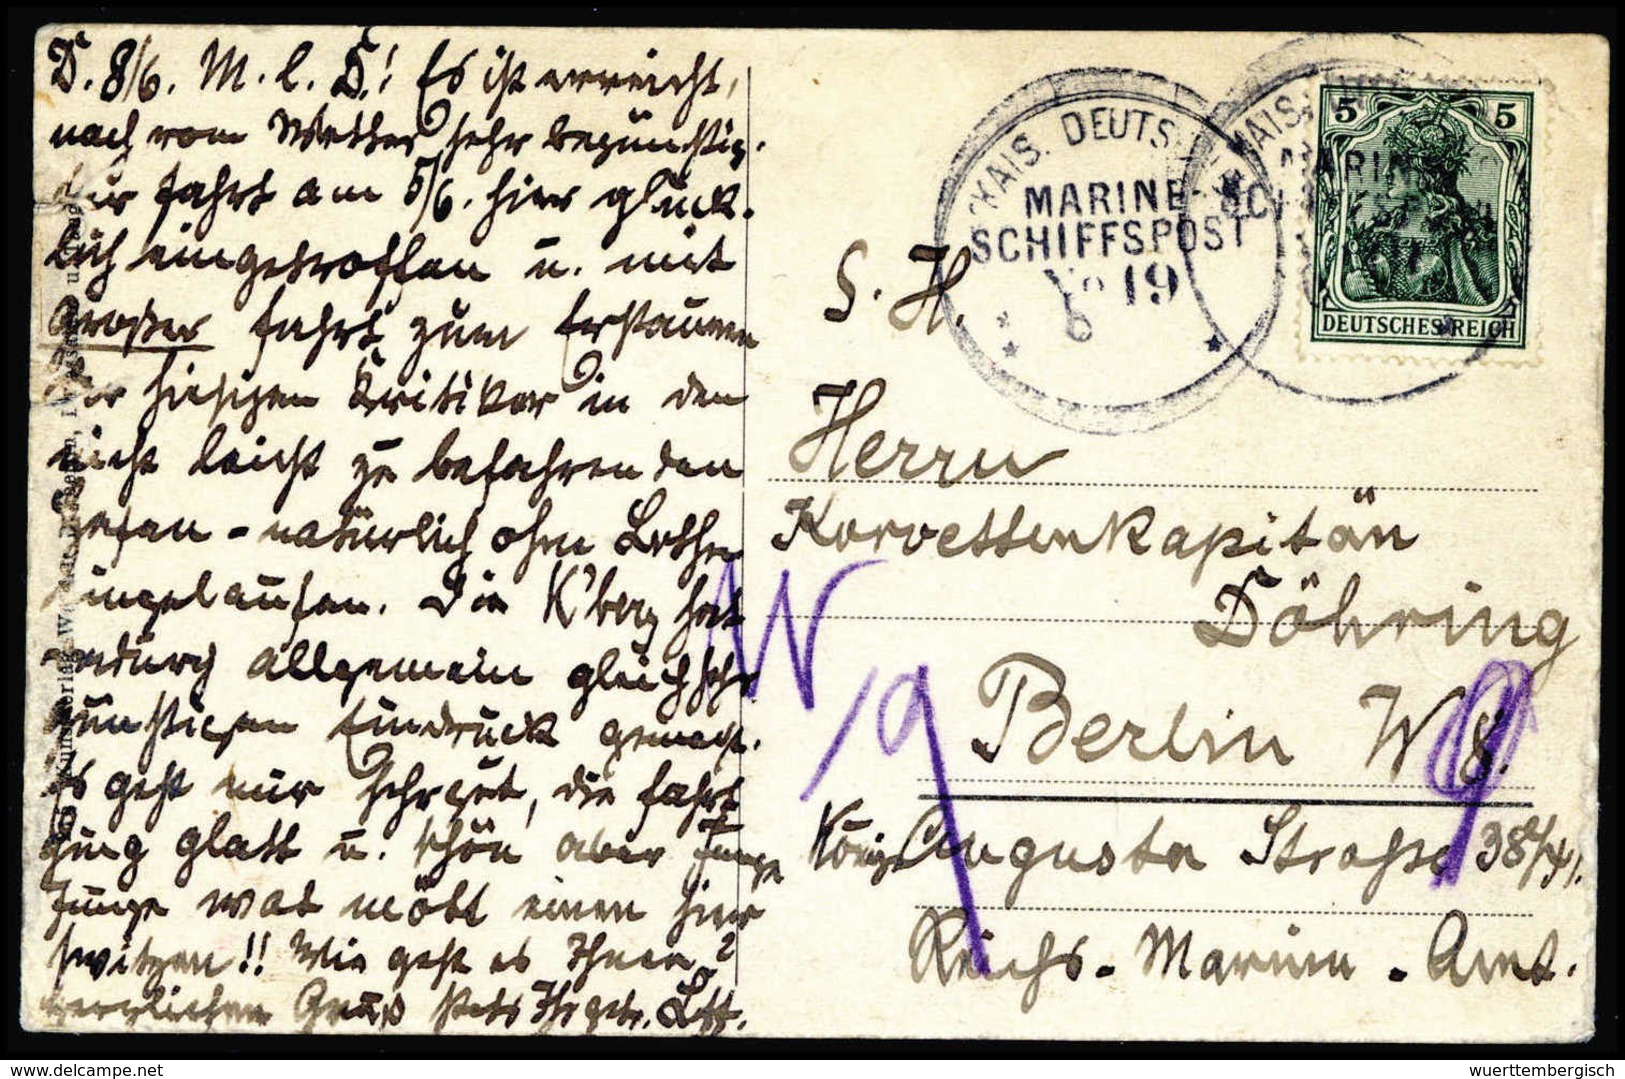 D. 8/6. M. l. D.! Es ist erreicht,
nach vom Wetter sehr begünstig-
ter Fahrt am 5/6. hier glück-
lich eingetroffen u. mit
großer Fahrt zum Erstaunen
der hiesigen Kritiker in den
nicht leicht zu befahrenden
Hafen - natürlich ohne Lothsen
eingelaufen. Die K'berg hat
dadurch allgemein gleich sehr
günstigen Eindruck gemacht.
Es geht mir sehr gut, die Fahrt
ging glatt u. schön aber Junge
Junge wat mööt einen hier
switzen!! Wie geht es Ihnen?
herzlichen Gruß stets Ihr getr.
KAIS. DEUTSCHE
MARINE-
SCHIFFSPOST
No 19
MARINE-
5 5
DEUTSCHES REICH
S. H.
Herrn
Korvettenkapitän
Döhring
Berlin W 9.
Königin Augusta Straße 38/41.
Reichs-Marine-Amt.
W
9
9
wuerttembergisch
www.delcampe.net